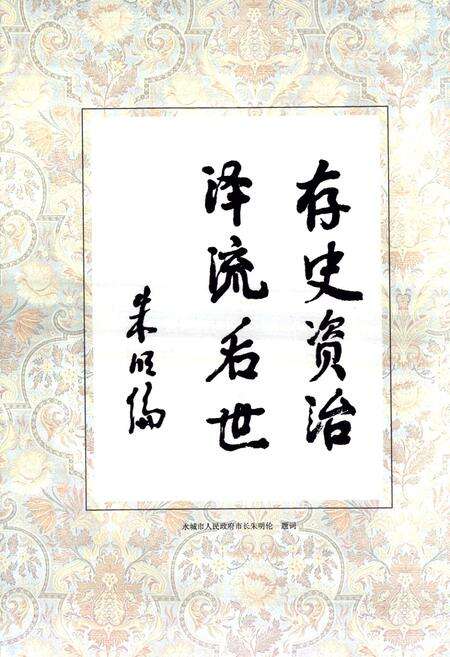 存史资治
泽流后世
朱明伦
永城市人民政府市长朱明伦 题词